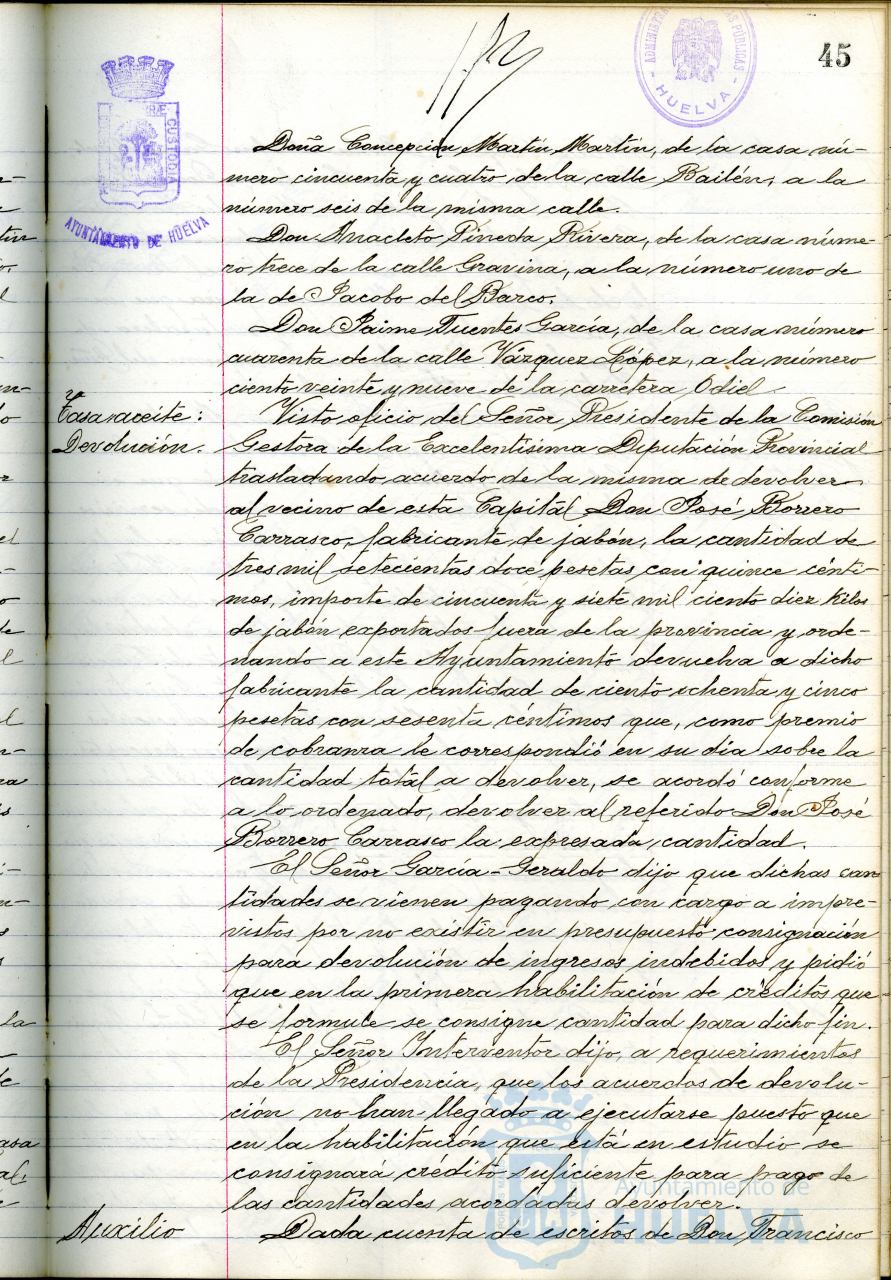 45
ADMINISTRA
PÚBLICAS
HUELVA
CUSTODIA
AYUNTAMIENTO DE HUELVA
Doña Concepción Martín Martín, de la casa nú-
mero cincuenta y cuatro de la calle Bailén, a la
número seis de la misma calle.
Don Anacleto Pineda Rivera, de la casa núme-
ro trece de la calle Gravina, a la número uno de
la de Jacobo del Barco.
Don Jaime Fuentes García, de la casa número
cuarenta de la calle Vázquez López, a la número
ciento veinte y nueve de la carretera Odiel.
Tasa s/aceite:
Devolución.
Visto oficio del Señor Presidente de la Comisión
Gestora de la Excelentísima Diputación Provincial
trasladando acuerdo de la misma de devolver
al vecino de esta Capital Don José Borrero
Carrasco, fabricante de jabón, la cantidad de
tres mil setecientas doce pesetas con quince cénti-
mos, importe de cincuenta y siete mil ciento diez kilos
de jabón exportados fuera de la provincia y orde-
nando a este Ayuntamiento devuelva a dicho
fabricante la cantidad de ciento ochenta y cinco
pesetas con sesenta céntimos que, como premio
de cobranza le correspondió en su día sobre la
cantidad total a devolver, se acordó conforme
a lo ordenado, devolver al referido Don José
Borrero Carrasco la expresada cantidad.
El Señor García-Geraldo dijo que dichas can
tidades se vienen pagando con cargo a impre-
vistos por no existir en presupuesto consignación
para devolución de ingresos indebidos y pidió
que en la primera habilitación de créditos que
se formule se consigne cantidad para dicho fin.
El Señor Interventor dijo, a requerimientos
de la Presidencia, que los acuerdos de devolu-
ción no han llegado a ejecutarse puesto que
en la habilitación que está en estudio se
consignará crédito suficiente para pago de
las cantidades acordadas devolver.
Ayuntamiento de
HUELVA
Auxilio
Dada cuenta de escritos de Don Francisco